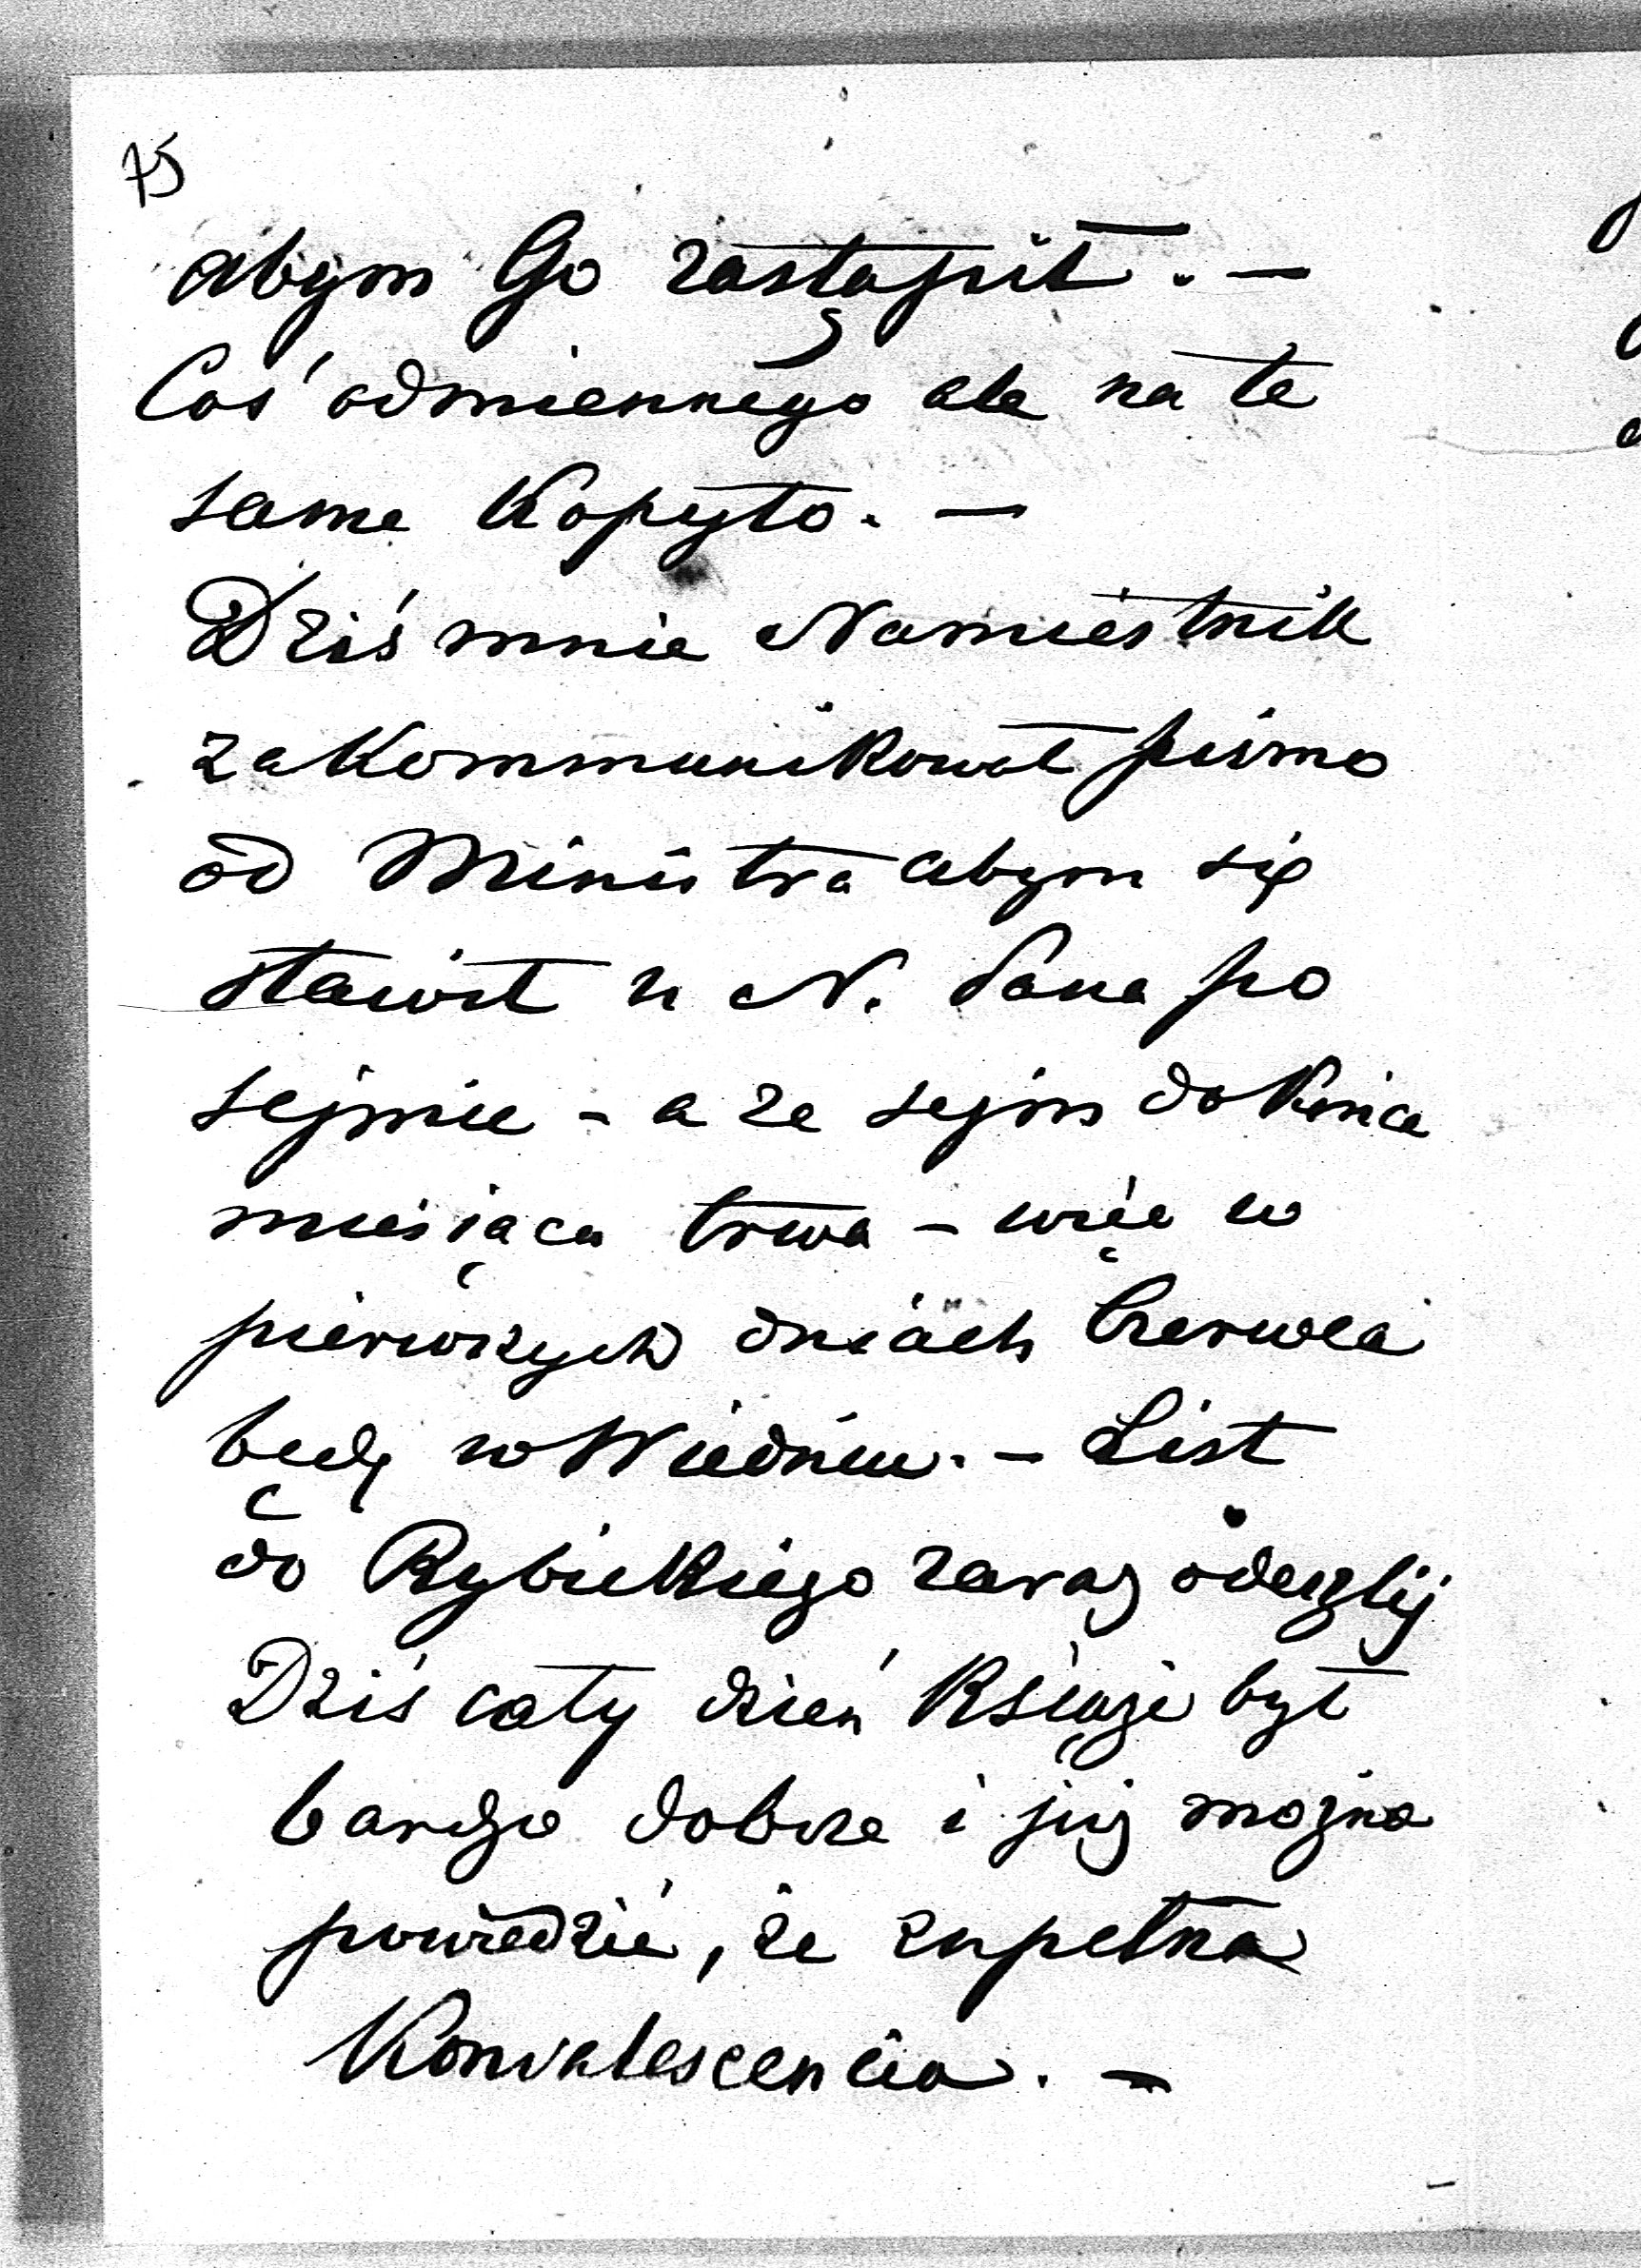 75
abym Go zastąpił. —
Coś odmiennego ale na te
same Kopyto. —
Dziś mnie Namiestnik
zakommunikował pismo
od Ministra abym się
stawił u N. Pana po
sejmie - a że sejm do Końca
miesiąca trwa - więc w
pierwszych dniach Czerwca
będę w Wiedniu. - List
do Rybickiego zaraz odeszlij
Dziś cały dzień Książe był
bardzo dobrze i już można
powiedzieć, że zupełna
Konvalescencia. —